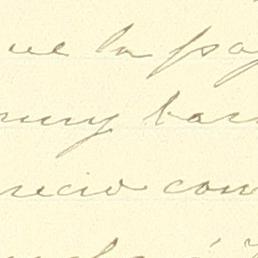 que la pa
muy bar
recio con